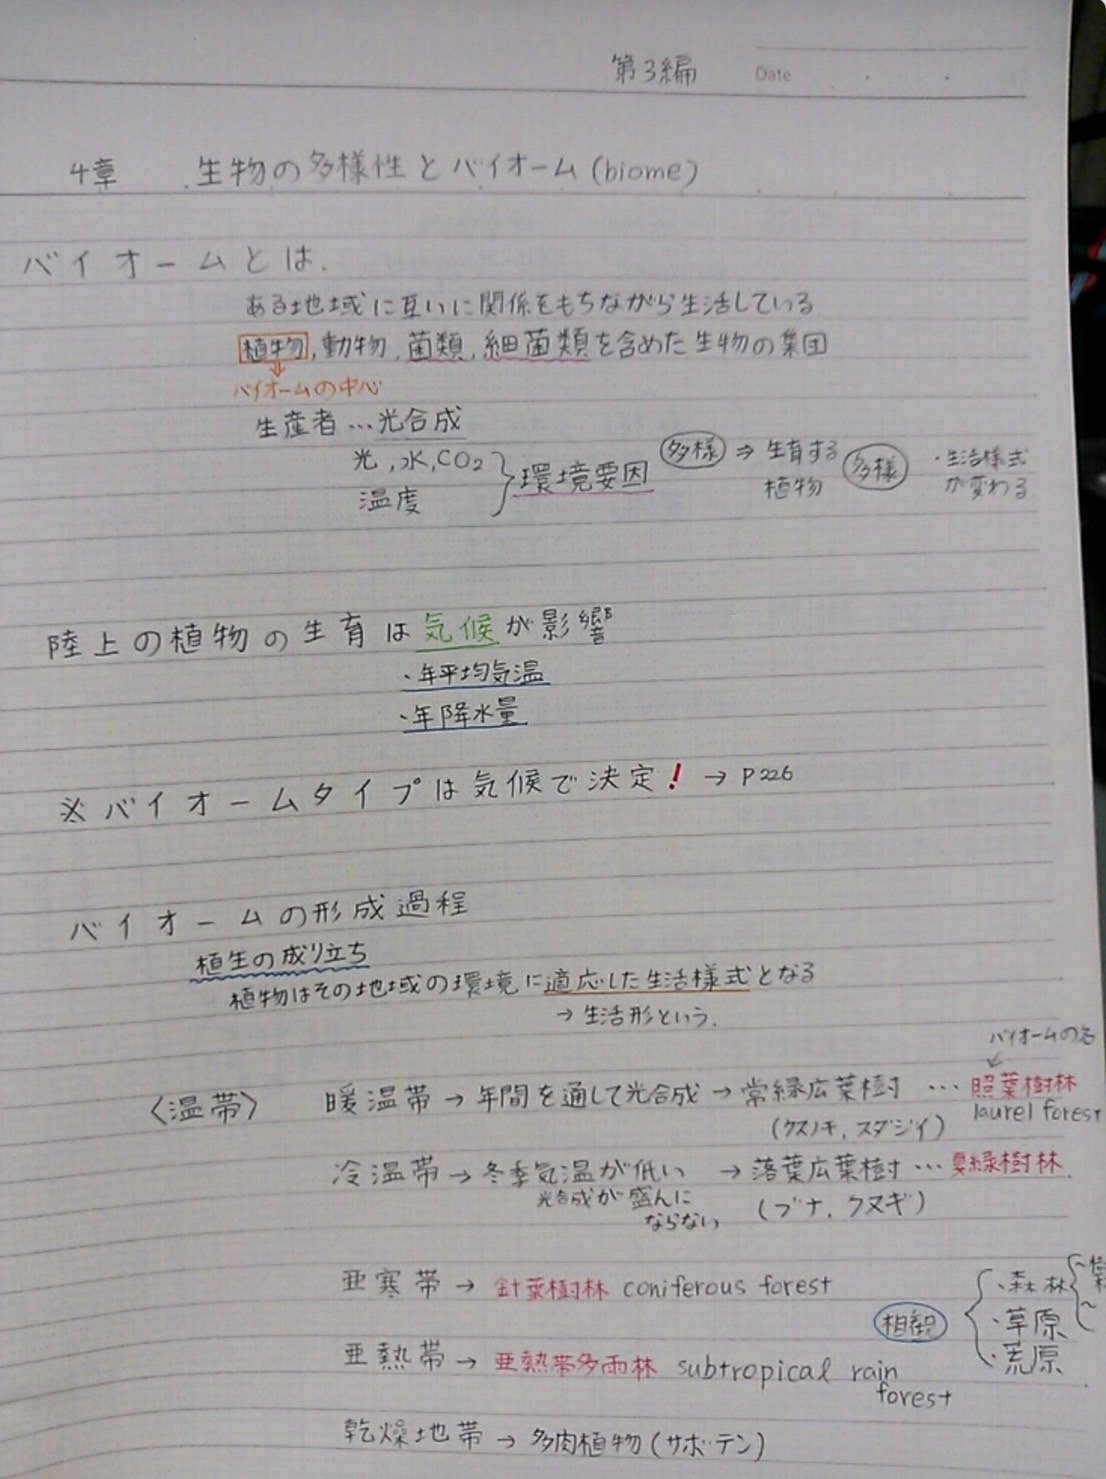 第3編
Date
4章 生物の多様性とバイオーム(biome)
バイオームとは.
ある地域に互いに関係をもちながら生活している
植物,動物,菌類,細菌類を含めた生物の集団
⇓
バイオームの中心
生産者…光合成
光,水,CO2 温度 } 環境要因 多様 ⇒ 生育する植物 多様 ・生活様式が変わる
陸上の植物の生育は気候が影響
・年平均気温
・年降水量
※バイオームタイプは気候で決定! → P226
バイオームの形成過程
植生の成り立ち
植物はその地域の環境に適応した生活様式となる
→ 生活形という.
バイオームの名
〈温帯〉 暖温帯 → 年間を通して光合成 → 常緑広葉樹 … 照葉樹林
(クスノキ,スダジイ) laurel forest
冷温帯 → 冬季気温が低い → 落葉広葉樹 … 夏緑樹林
光合成が盛んにならない (ブナ,クヌギ)
亜寒帯 → 針葉樹林 coniferous forest
相観 { ・森林 { ~
・草原 ~
・荒原
亜熱帯 → 亜熱帯多雨林 subtropical rain forest
乾燥地帯 → 多肉植物(サボテン)